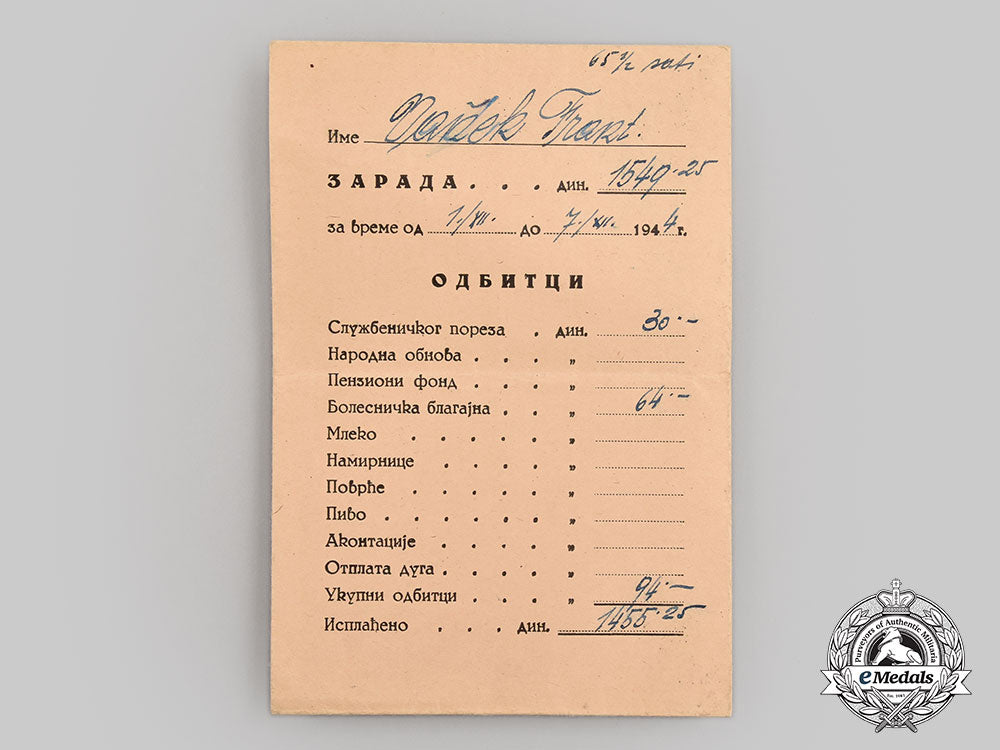 65 1/2 sati
Име Varžek Frant.
ЗАРАДА . . . дин. 1549·25
за време од 1./XII. до 7./XII. 1944 г.
ОДБИТЦИ
Службеничког пореза . дин. 30·–
Народна обнова . . . „
Пензиони фонд . . . „
Болесничка благајна . . „ 64·–
Млеко . . . . . „
Намирнице . . . . „
Поврће . . . . . „
Пиво . . . . . . „
Аконтације . . . . „
Отплата дуга . . . . „
Укупни одбитци . . . „ 94·–
Исплаћено . . . дин. 1455·25
Purveyors of Authentic Militaria
eMedals